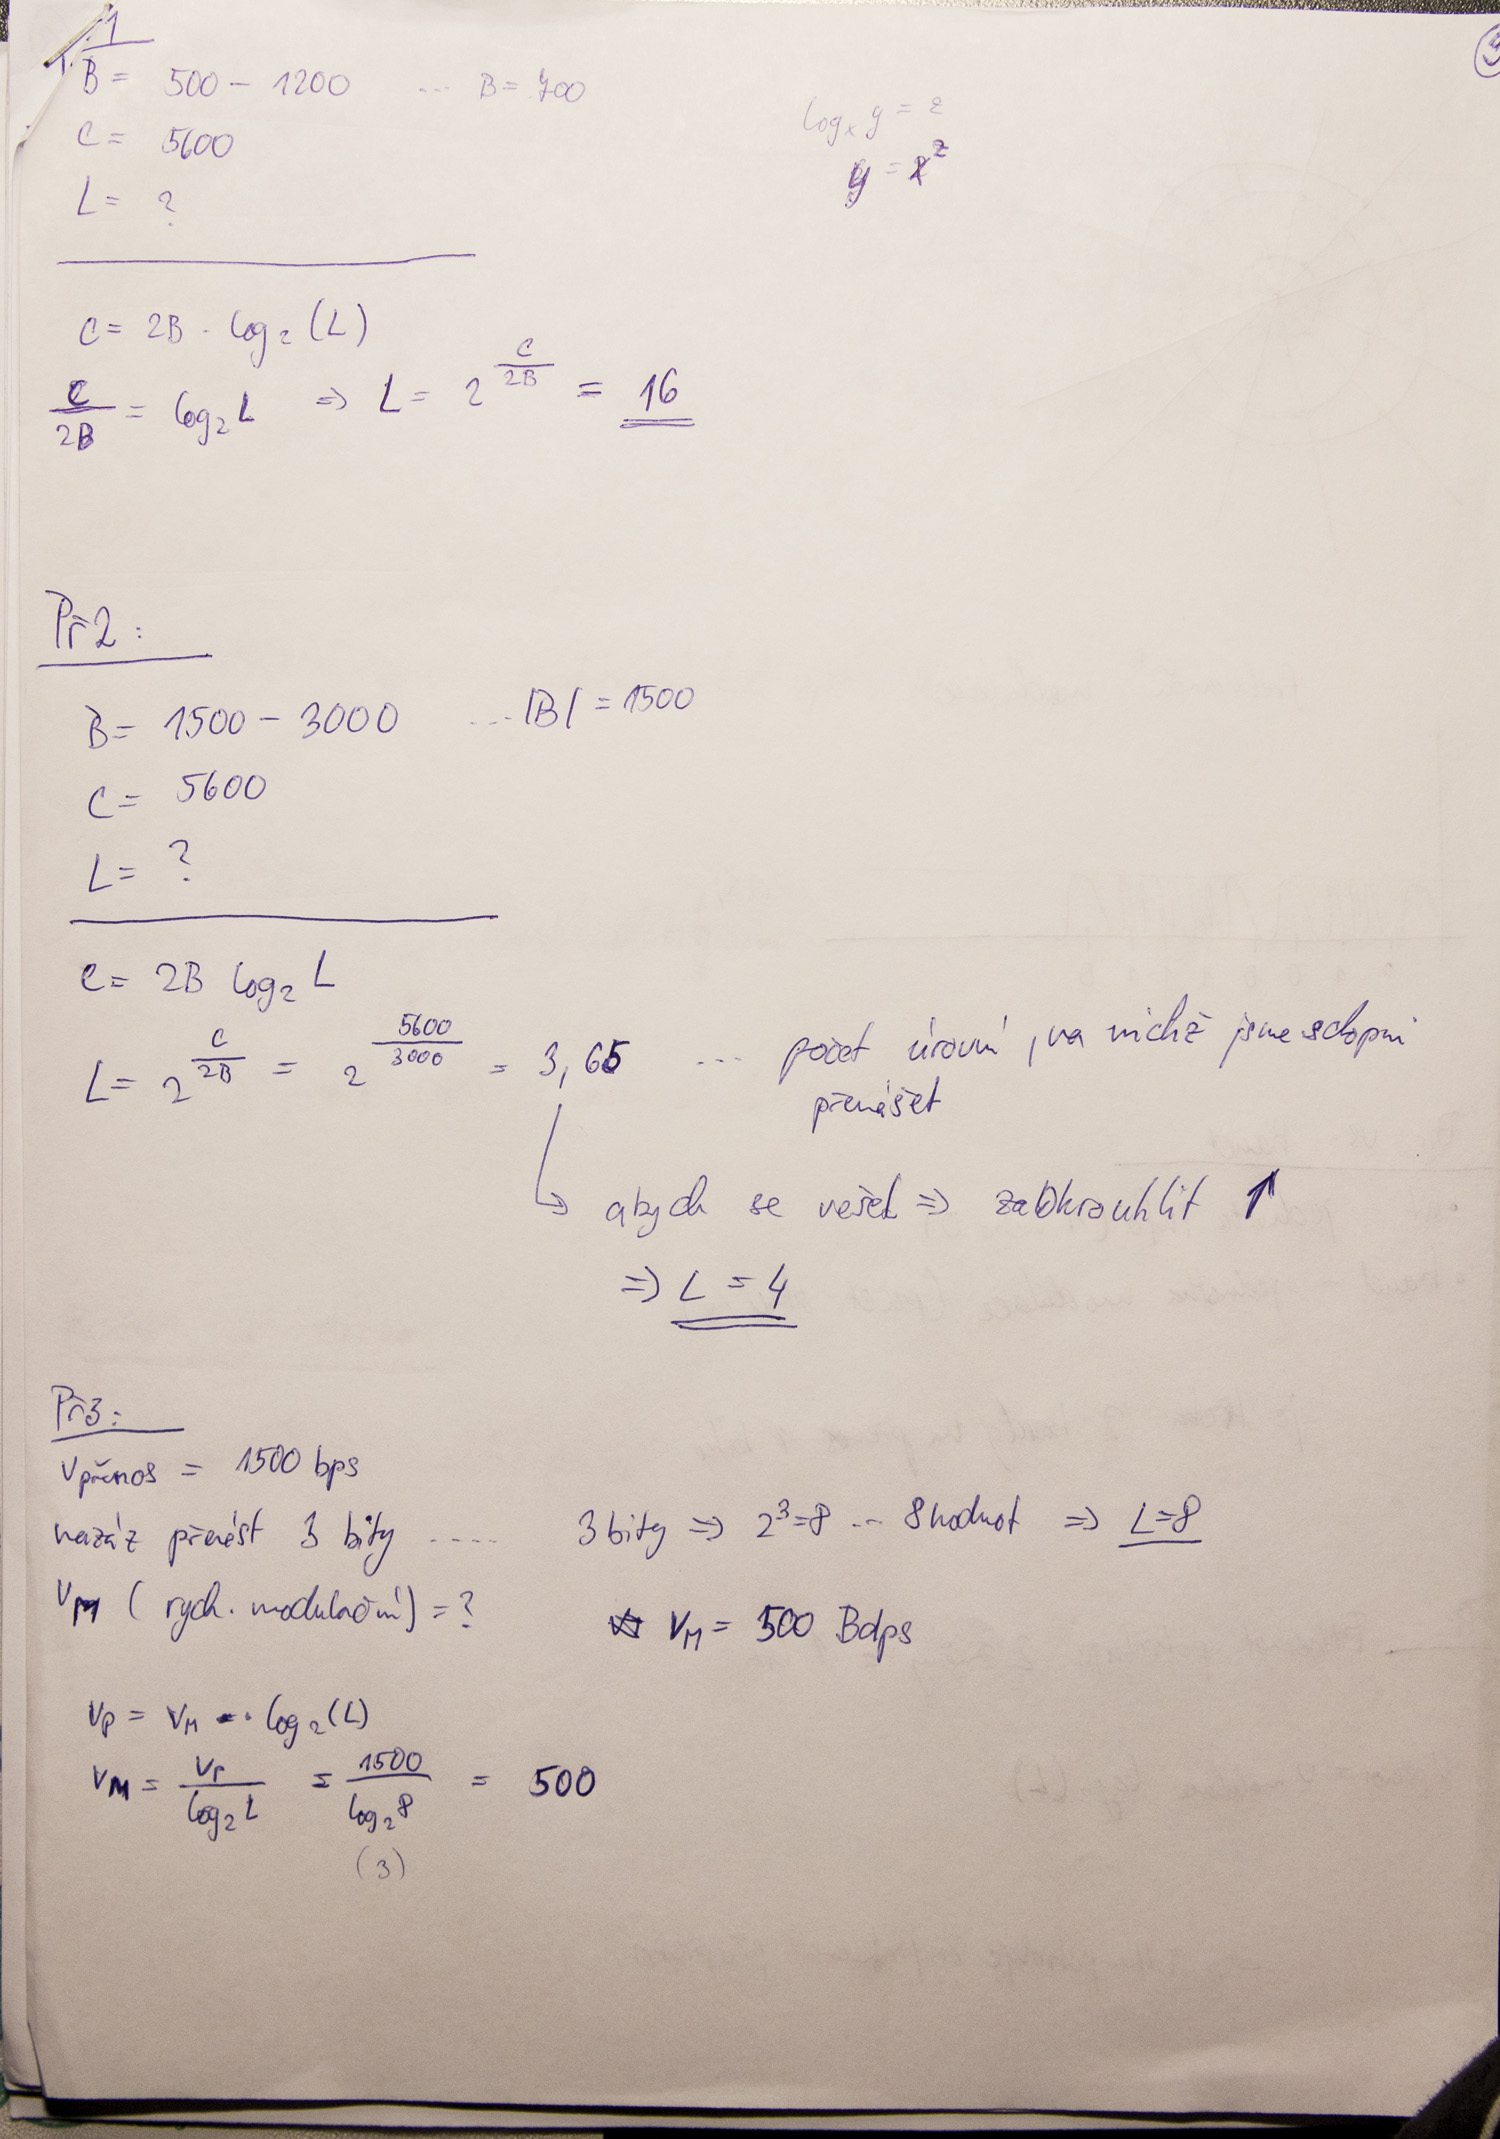 1
B = 500 - 1200 ... B = 700
C = 5600
L = ?
log_x y = z
y = x^z
C = 2B · log_2 (L)
C/2B = log_2 L => L = 2^(C/2B) = 16
Př2:
B = 1500 - 3000 ... |B| = 1500
C = 5600
L = ?
C = 2B log_2 L
L = 2^(C/2B) = 2^(5600/3000) = 3,65 ... počet úrovní, na nichž jsme schopni
přenášet
abych se vešel => zaokrouhlit ↑
=> L = 4
Př3:
v přenos = 1500 bps
naráz přenést 3 bity .... 3 bity => 2^3=8 ... 8 hodnot => L=8
v_M (rych. modulační) = ? v_M = 500 Bdps
v_P = v_M · log_2 (L)
v_M = v_P/log_2 L = 1500/log_2 8 = 500
(3)